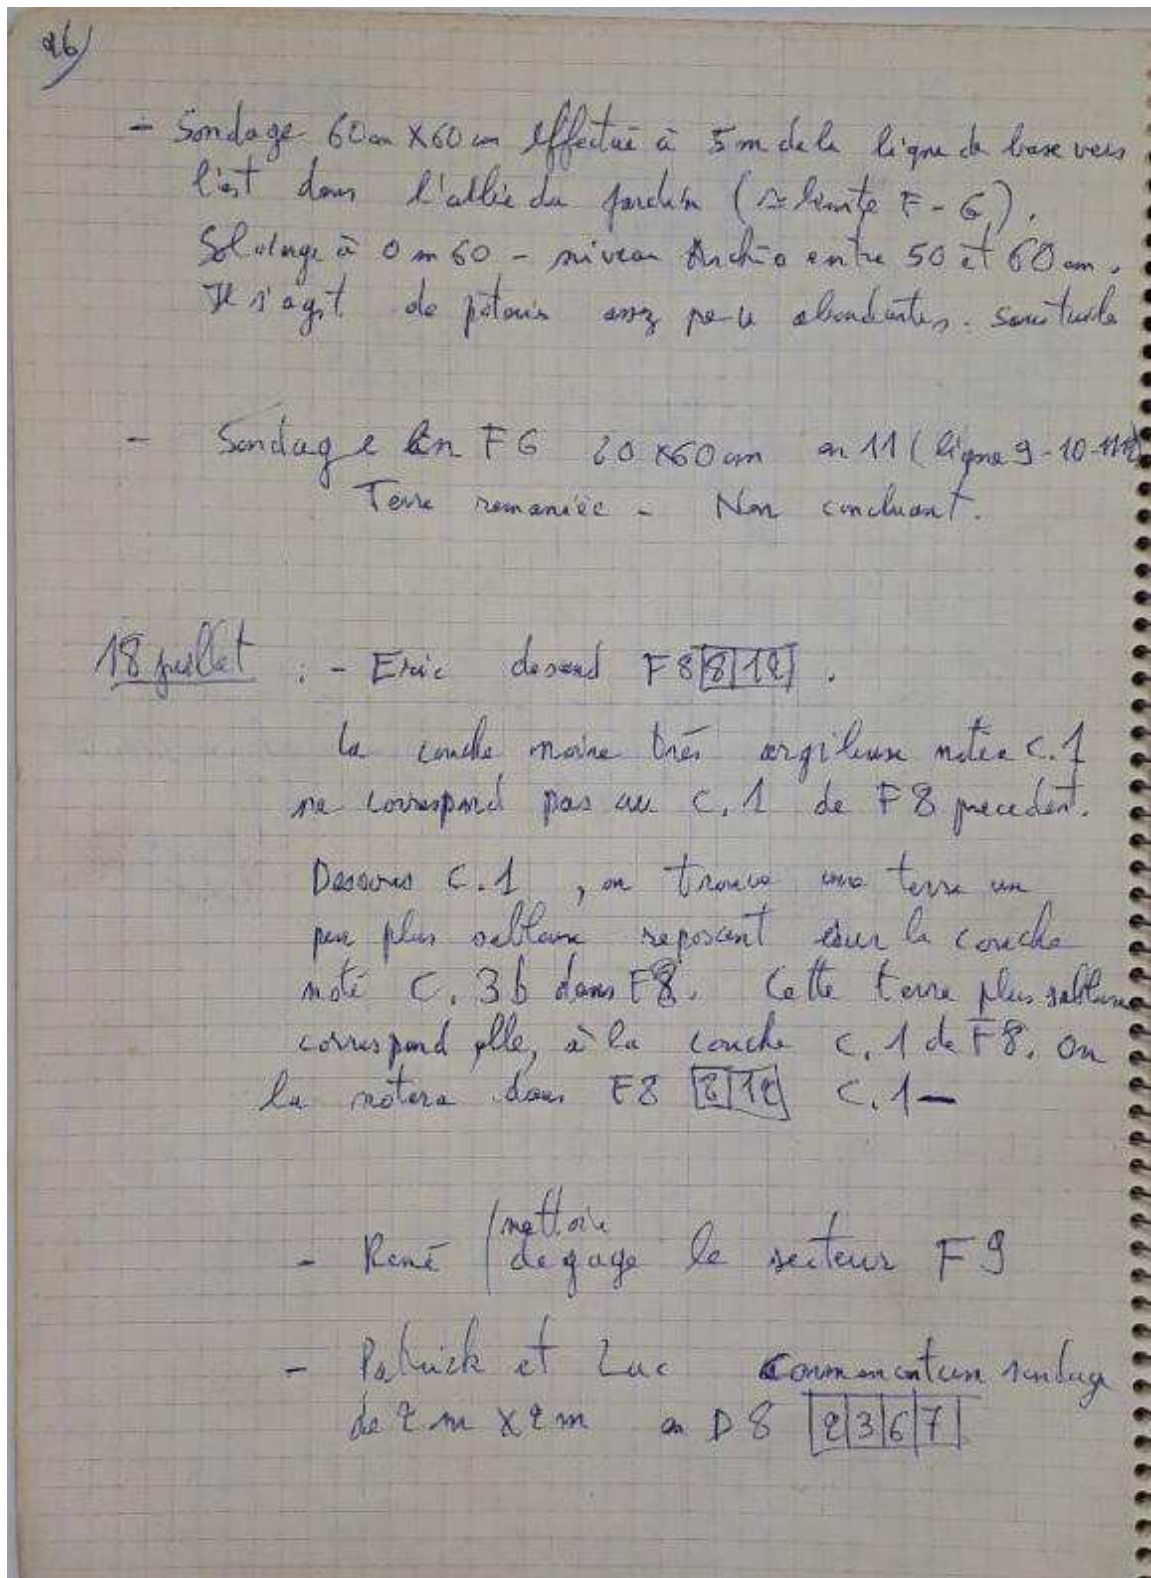 26/
- Sondage 60cm X60 cm effectué à 5 m de la ligne de base vers
l'est dans l'allée du jardin (≃ limite F-G).
Sol vierge à 0 m 60 - niveau Archéo entre 50 et 60 cm.
Il s'agit de poteries assez peu abondantes. sans tuile
- Sondage En F6 60 x60 cm en 11 (ligne 9-10-11-12)
Terre remaniée - Non concluant.
18 juillet : - Eric descend F8 |8|12| .
la couche noire très argileuse notée C.1
ne correspond pas au C.1 de F8 precedent.
Dessous C.1 , on trouve une terre un
peu plus sableuse reposant sur la couche
noté C. 3b dans F8. Cette terre plus sableuse
correspond elle, à la couche C.1 de F8. on
la notera dans F8 |8|12| C.1-
- René / nettoie
degage le secteur F9
- Patrick et Luc commencent un sondage
de 2 m X 2 m en D8 |2|3|6|7|